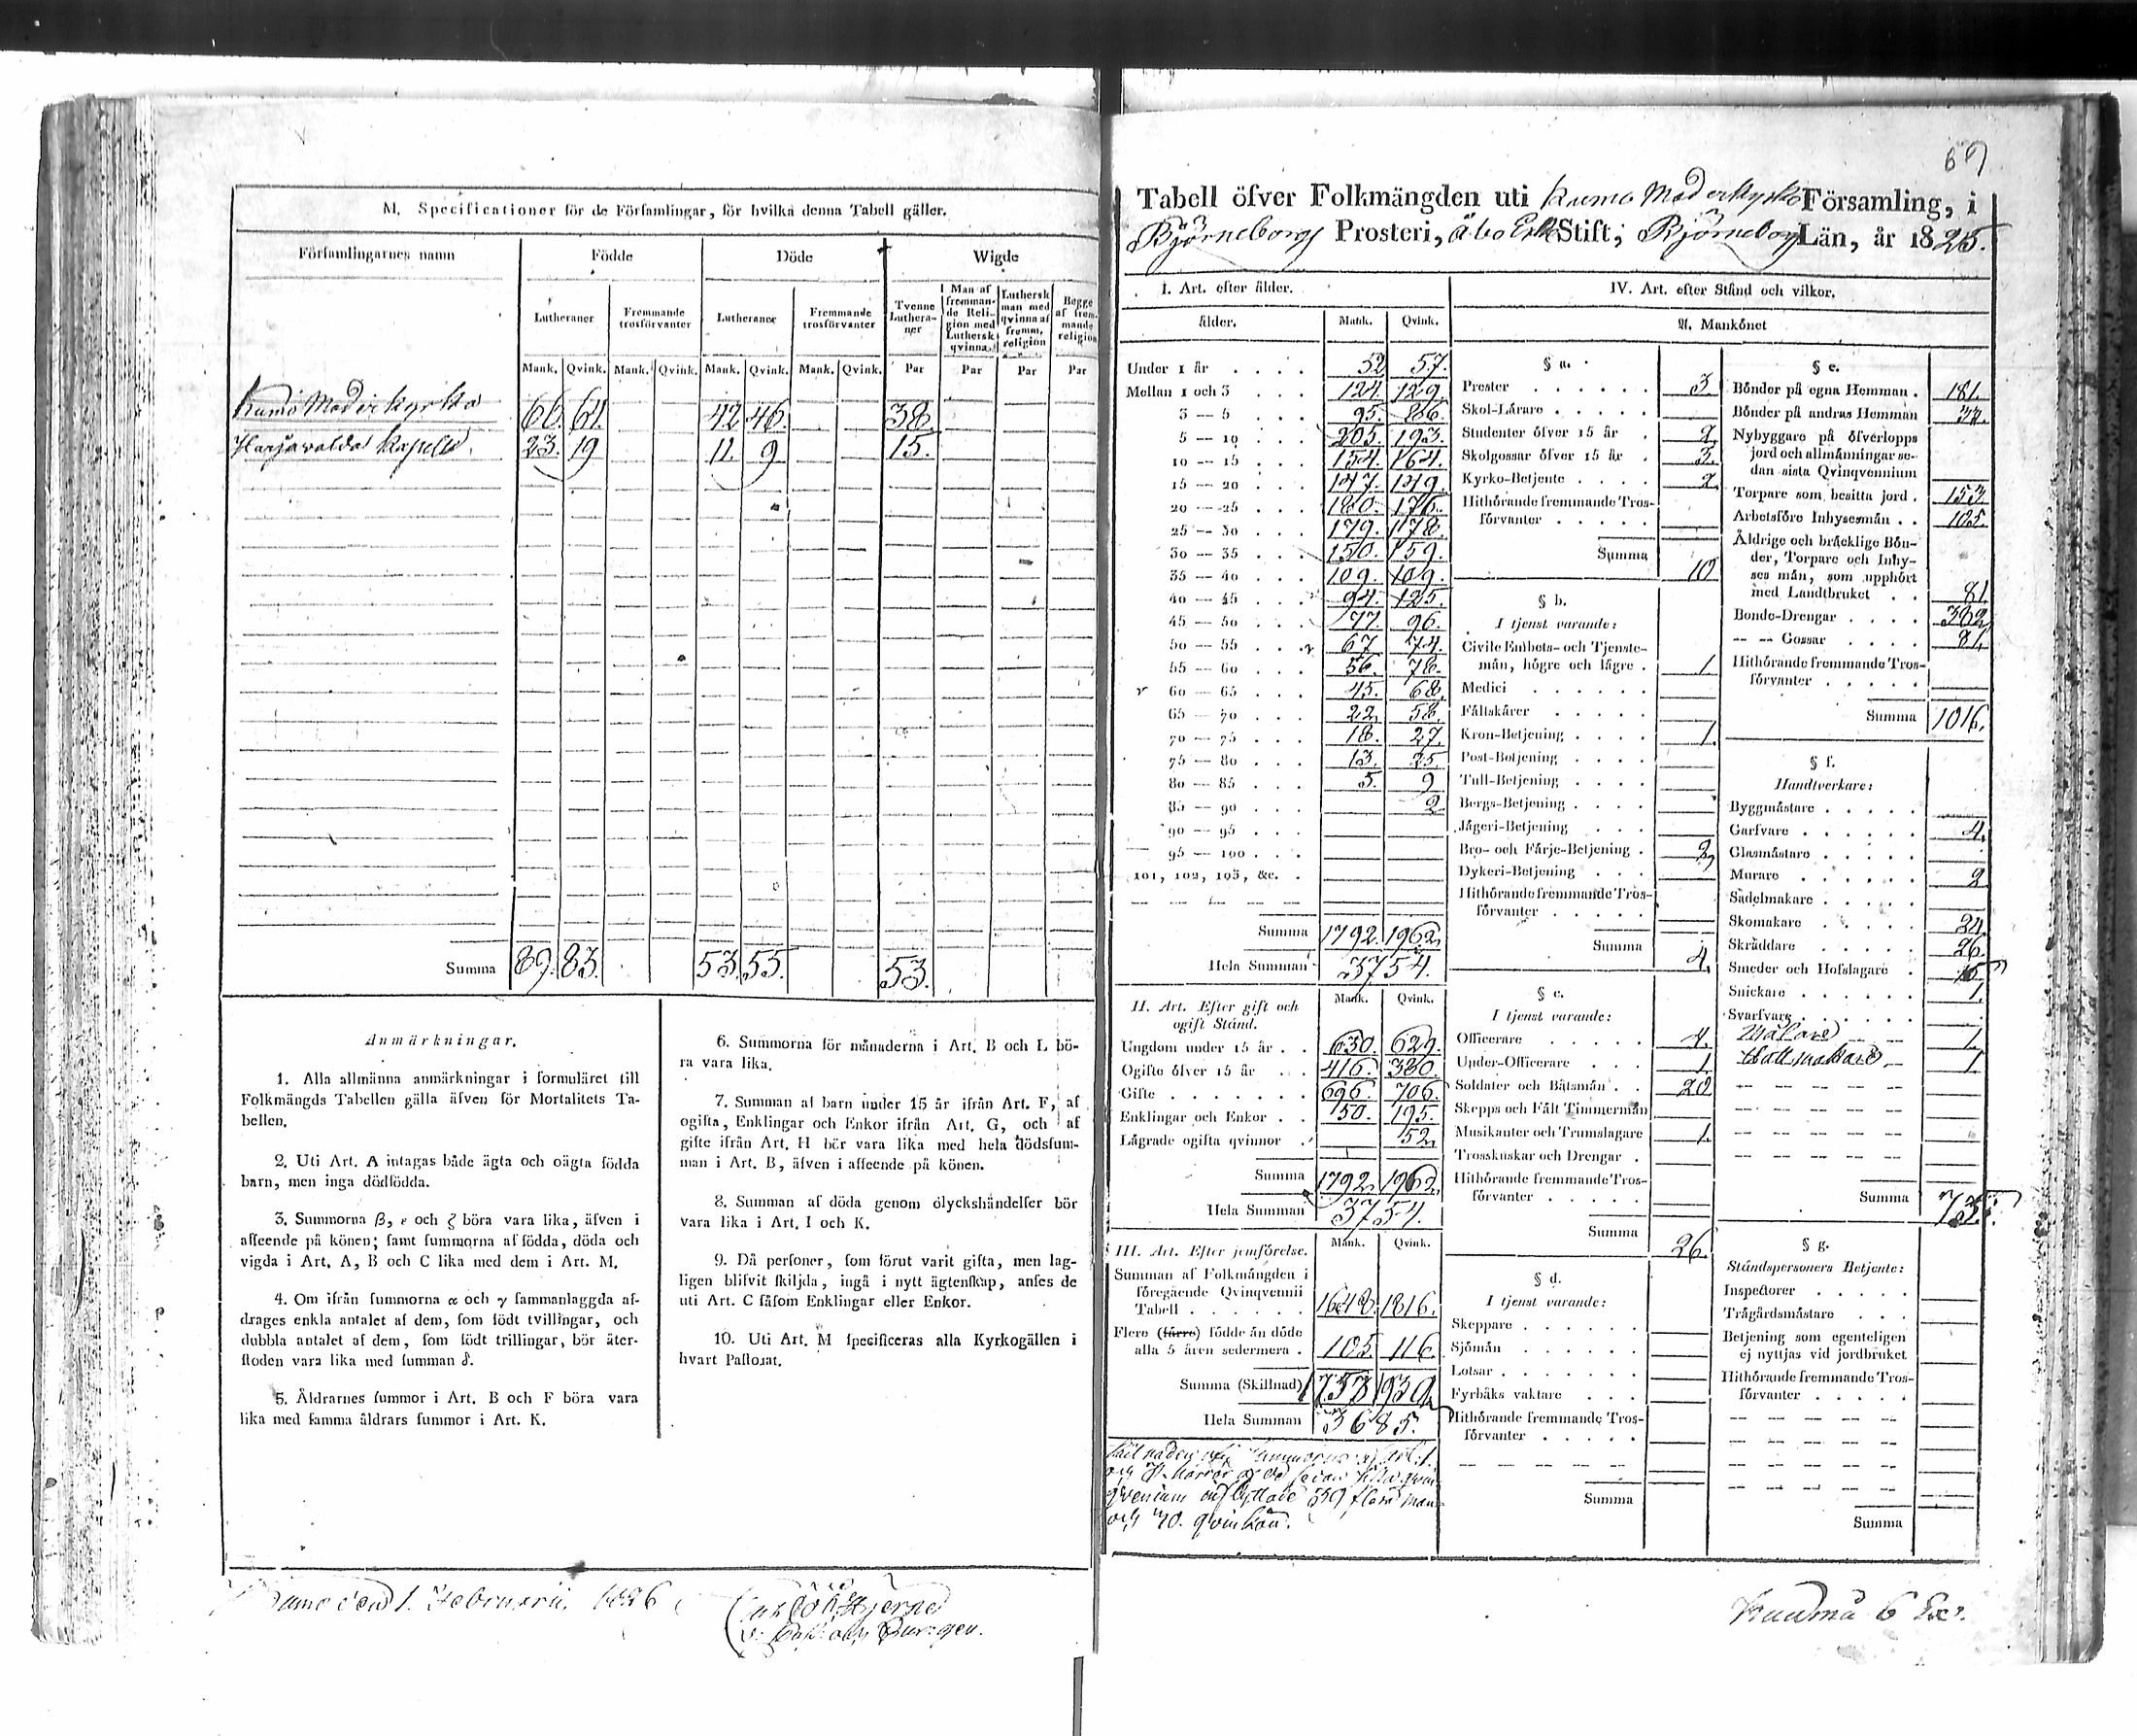 M. Specificationer för de Församlingar, för hvilka denna Tabell gäller.
Församlingarnes namn Födde Döde Wigde
Lutheraner Fremmande trosförvanter Lutheraner Fremmande trosförvanter Tvenne Lutheraner Man af fremmande Religion med Luthersk qvinna. Luthersk man med qvinna af fremm. religion Begge af fremmande religion
Mank. Qvink. Mank. Qvink. Mank. Qvink. Mank. Qvink. Par Par Par Par
Kumo Moderkyrka 66. 64. 42 46. 38.
Harjavalda Kapell. 23. 19 11. 9 15.
Summa 89. 83. 53. 55. 53.
Anmärkningar.
1. Alla allmänna anmärkningar i formuläret till
Folkmängds Tabellen gälla äfven för Mortalitets Ta-
bellen.
2. Uti Art. A intagas både ägta och oägta födda
barn, men inga dödfödda.
3. Summorna β, ε och ζ böra vara lika, äfven i
afseende på könen; samt summorna af födda, döda och
vigda i Art. A, B och C lika med dem i Art. M.
4. Om ifrån summorna α och γ sammanlaggda af-
drages enkla antalet af dem, som födt tvillingar, och
dubbla antalet af dem, som födt trillingar, bör åter-
stoden vara lika med summan δ.
5. Åldrarnes summor i Art. B och F böra vara
lika med samma åldrars summor i Art. K.
6. Summorna för månaderna i Art. B och L bö-
ra vara lika.
7. Summan af barn under 15 år ifrån Art. F, af
ogifta, Enklingar och Enkor ifrån Art. G, och af
gifte ifrån Art. H bör vara lika med hela dödssum-
man i Art. B, äfven i afseende på könen.
8. Summan af döda genom olyckshändelser bör
vara lika i Art. I och K.
9. Då personer, som förut varit gifta, men lag-
ligen blifvit skiljda, ingå i nytt ägtenskap, anses de
uti Art. C såsom Enklingar eller Enkor.
10. Uti Art. M specificeras alla Kyrkogällen i
hvart Pastorat.
Kumo den 1. Februarii 1826
69
Tabell öfver Folkmängden uti Kumo Moderkyrko Församling, i
Björneborgs Prosteri, Åbo Erke Stift, Björneborgs Län, år 1825.
I. Art. efter ålder.
ålder. Mank. Qvink.
Under 1 år 52 57.
Mellan 1 och 3 124. 129.
3 — 5 95. 86.
5 — 10 205. 193.
10 — 15 154. 164.
15 — 20 147. 149.
20 — 25 180. 176.
25 — 30 179. 178.
30 — 35 150. 159.
35 — 40 109. 109.
40 — 45 94. 125.
45 — 50 77. 96.
50 — 55 67 74.
55 — 60 56. 78.
60 — 65 45. 68.
65 — 70 22. 58.
70 — 75 18. 27.
75 — 80 13. 25.
80 — 85 5. 9
85 — 90 2
90 — 95
95 — 100
101, 102, 103, &c.
Summa 1792. 1962.
Hela Summan 3754.
II. Art. Efter gift och
ogift Stånd. Mank. Qvink.
Ungdom under 15 år 630. 629.
Ogifte öfver 15 år 416. 380.
Gifte 696. 706.
Enklingar och Enkor 150. 195.
Lägrade ogifta qvinnor 52.
Summa 1792. 1962.
Hela Summan 3754.
III. Art. Efter jemförelse. Mank. Qvink.
Summan af Folkmängden i
föregående Qvinqvennii
Tabell 1648. 1816.
Flere (färre) födde än döde
alla 5 åren sedermera 105 116.
Summa (Skillnad) 1753 1932
Hela Summan 3685.
och 70. qvinkön.
IV. Art. efter Stånd och vilkor.
A. Mankönet
§ a.
Prester 3.
Skol-Lärare
Studenter öfver 15 år 2.
Skolgossar öfver 15 år 3.
Kyrko-Betjente 2
Hithörande fremmande Tros-
förvanter
Summa 10
§ b.
I tjenst varande:
Civile Embets- och Tjenste-
män, högre och lägre 1.
Medici
Fältskärer
Kron-Betjening 1.
Post-Betjening
Tull-Betjening
Bergs-Betjening
Jägeri-Betjening
Bro- och Färje-Betjening 2
Dykeri-Betjening
Hithörande fremmande Tros-
förvanter
Summa 4.
§ c.
I tjenst varande:
Officerare 4.
Under-Officerare 1
Soldater och Båtsmän 20
Skepps och Fält Timmermän
Musikanter och Trumslagare 1.
Trosskuskar och Drengar
Hithörande fremmande Tros-
förvanter
Summa 26.
§ d.
I tjenst varande:
Skeppare
Sjömän
Lotsar
Fyrbåks vaktare
Hithörande fremmande Tros-
förvanter
Summa
§ e.
Bönder på egna Hemman 181.
Bönder på andras Hemman
Nybyggare på öfverlopps
jord och allmänningar se-
dan sista Qvinqvennium
Torpare som besitta jord 153
Arbetsföre Inhysesmän 105.
Äldrige och bräcklige Bön-
der, Torpare och Inhy-
ses män, som upphört
med Landtbruket 81
Bonde-Drengar
— — Gossar 81.
Hithörande fremmande Tros-
förvanter
Summa 1016.
§ f.
Handtverkare:
Byggmästare
Garfvare 4.
Glasmästare
Murare 2
Sadelmakare
Skomakare 24
Skräddare 26.
Smeder och Hofslagare
Snickare 1.
Svarfvare
Målare 1.
Hattmakare 1.
Summa
§ g.
Ståndspersoners Betjente:
Inspectorer
Trägårdsmästare
Betjening som egenteligen
ej nyttjas vid jordbruket
Hithörande fremmande Tros-
förvanter
Summa